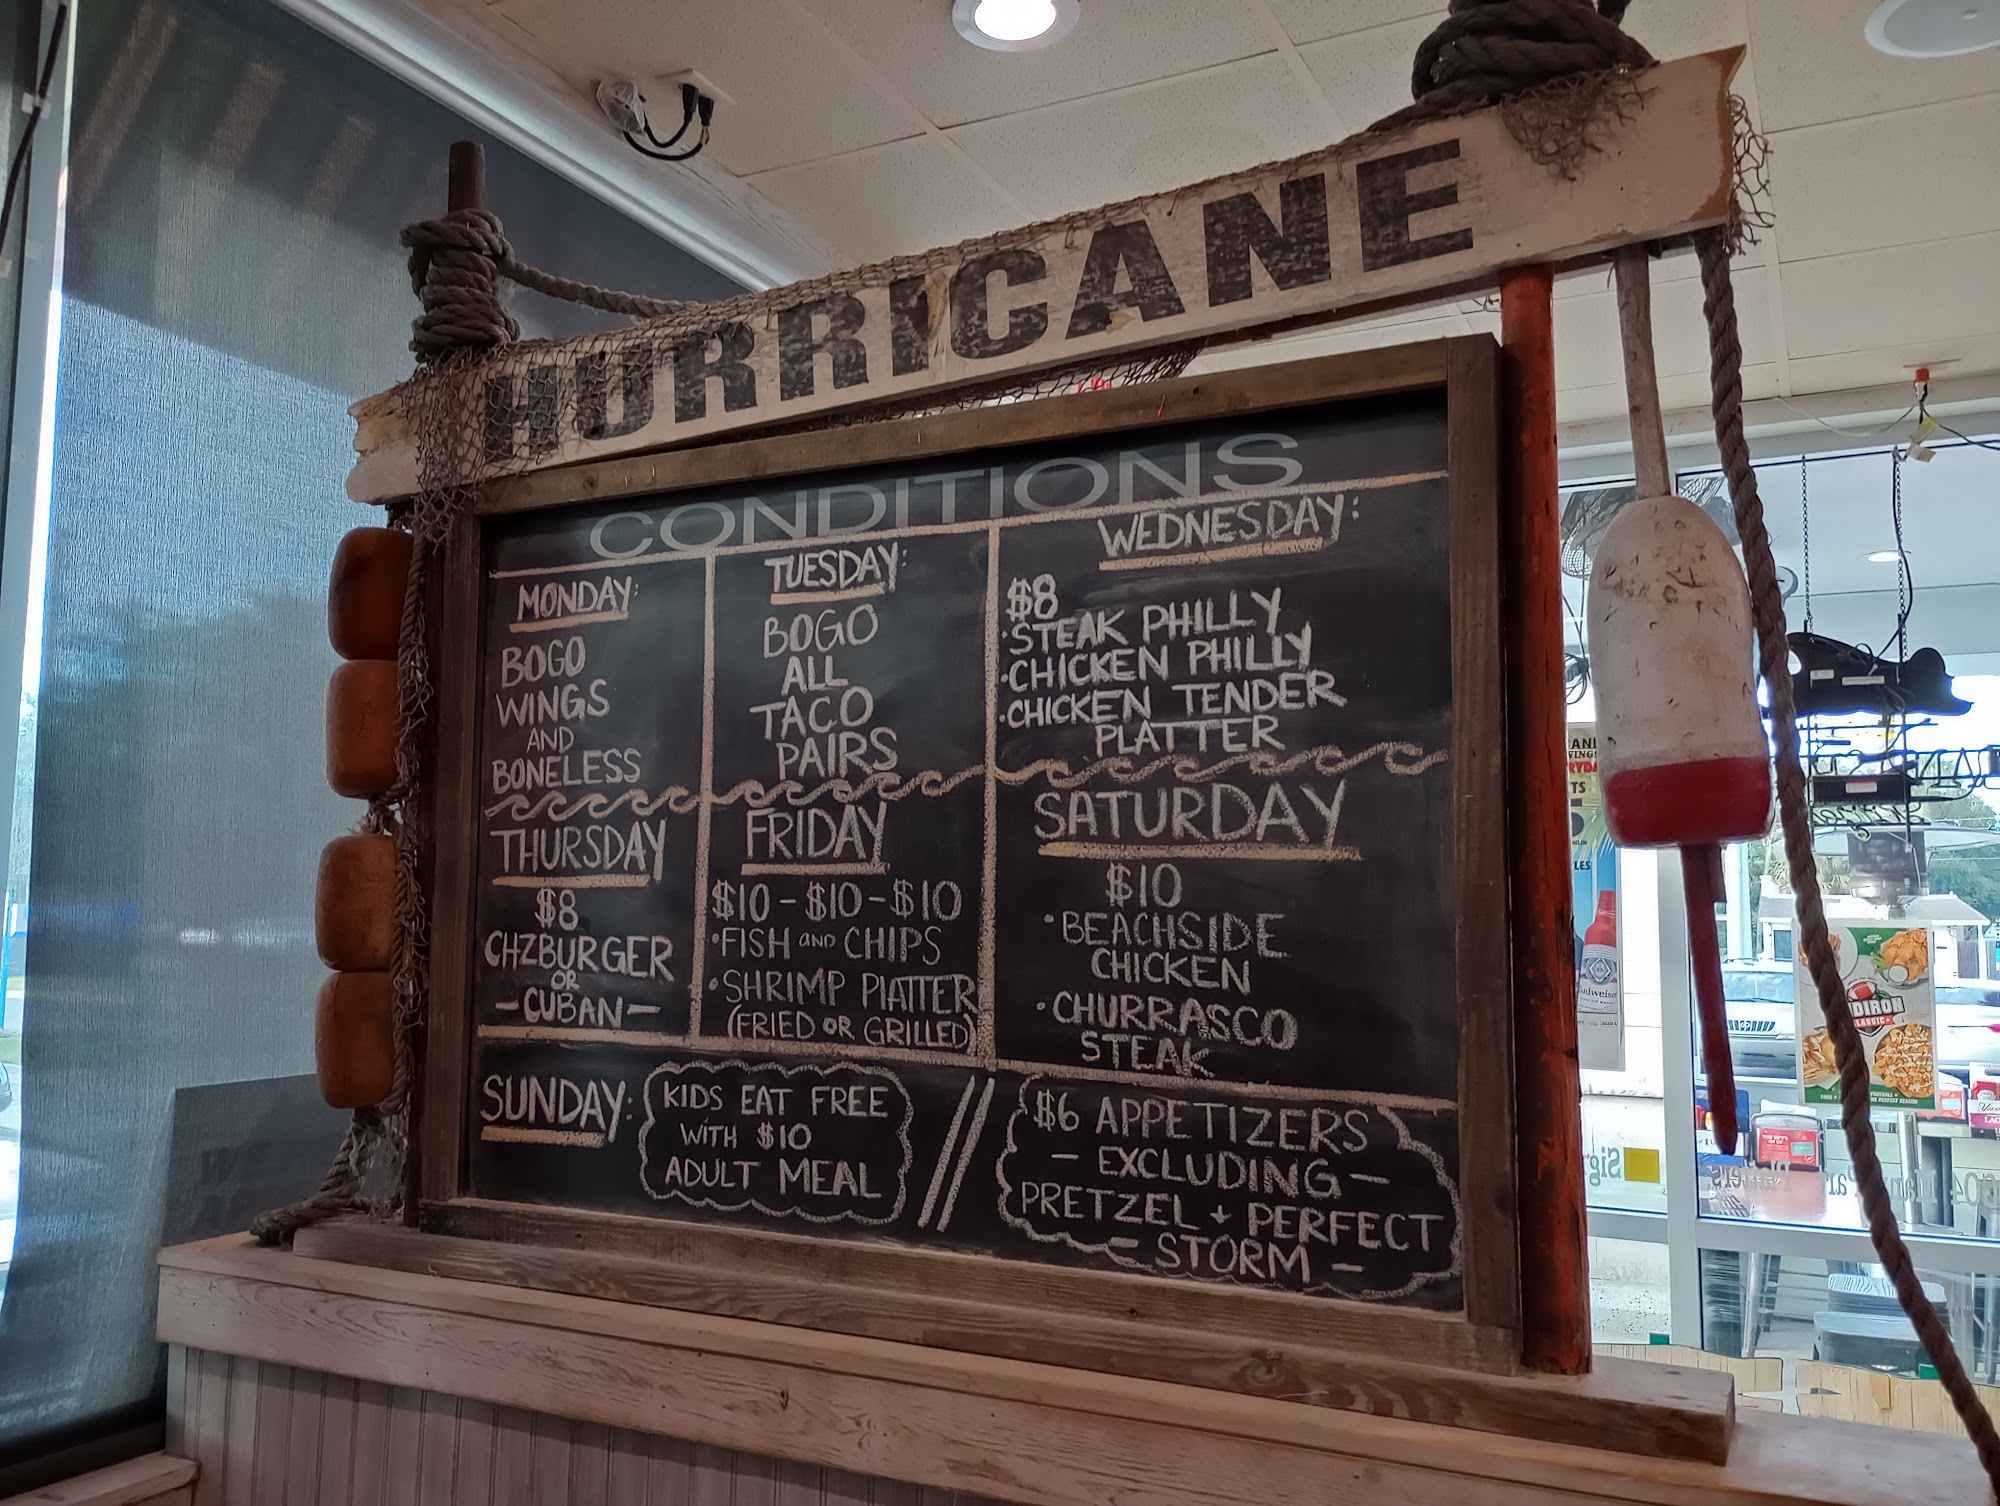 HURRICANE
CONDITIONS
MONDAY:
BOGO
WINGS
AND
BONELESS
TUESDAY:
BOGO
ALL
TACO
PAIRS
WEDNESDAY:
$8
·STEAK PHILLY
·CHICKEN PHILLY
·CHICKEN TENDER
PLATTER
THURSDAY
$8
CHZBURGER
OR
-CUBAN-
FRIDAY
$10-$10-$10
·FISH AND CHIPS
·SHRIMP PLATTER
(FRIED OR GRILLED)
SATURDAY
$10
·BEACHSIDE
CHICKEN
·CHURRASCO
STEAK
SUNDAY:
KIDS EAT FREE
WITH $10
ADULT MEAL
//
$6 APPETIZERS
-EXCLUDING-
PRETZEL + PERFECT
-STORM-